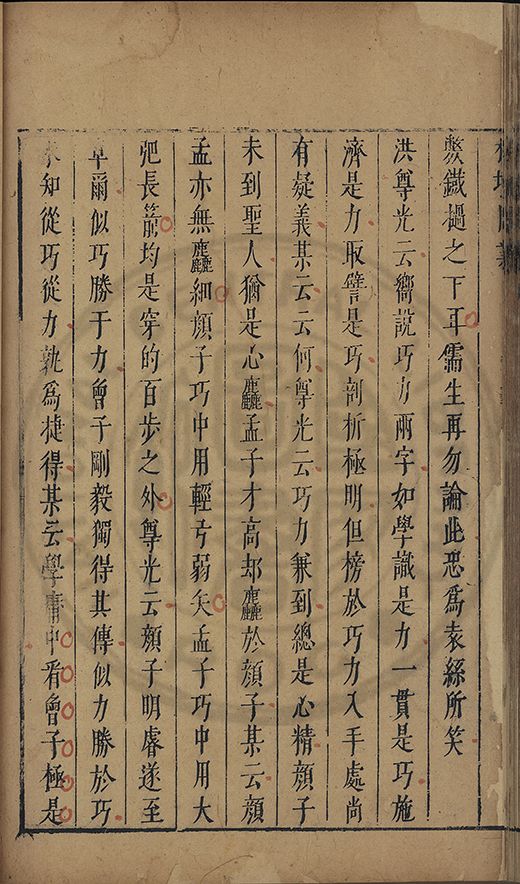 斃鐵撾之下耳儒生再勿論此恐為袁絲所笑
洪尊光云嚮說巧力兩字如學識是力一貫是巧施
濟是力取譬是巧剖析極明但榜於巧力入手處尚
有疑義某云云何尊光云巧力兼到總是心精顏子
未到聖人猶是心麤孟子才高却麤於顏子某云顏
孟亦無麤細顏子巧中用輕弓弱矢孟子巧中用大
弝長箭均是穿的百步之外尊光云顏子明睿遂至
卓爾似巧勝于力曾子剛毅獨得其傳似力勝於巧
未知從巧從力孰為捷得某云學庸中看曾子極是